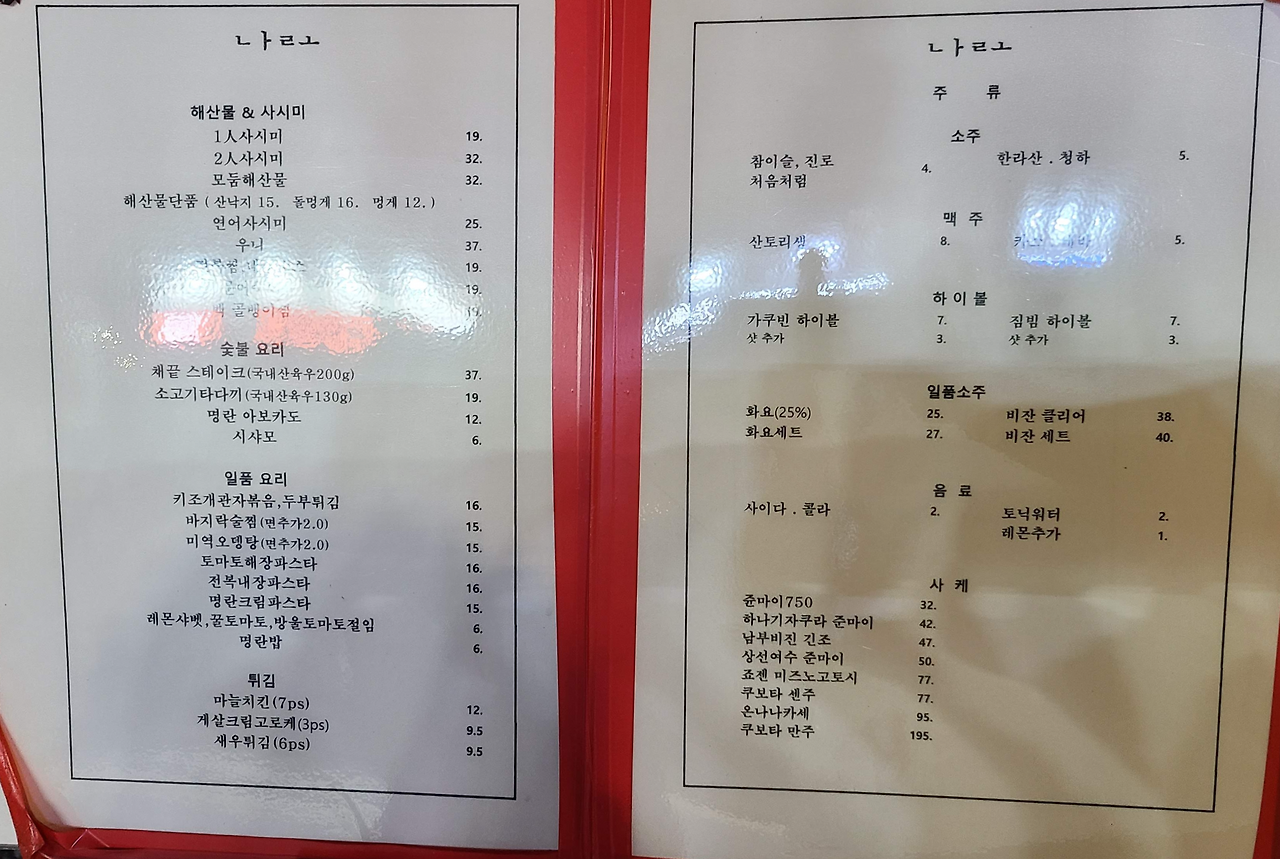 ㄴㅏㄹㅗ
해산물 & 사시미
1人사시미 19.
2人사시미 32.
모둠해산물 32.
해산물단품 ( 산낙지 15. 돌멍게 16. 멍게 12. )
연어사시미 25.
우니 37.
19.
19.
골뱅이찜 19.
숯불 요리
채끝 스테이크(국내산육우200g) 37.
소고기타다끼(국내산육우130g) 19.
명란 아보카도 12.
시샤모 6.
일품 요리
키조개관자볶음,두부튀김 16.
바지락술찜(면추가2.0) 15.
미역오뎅탕(면추가2.0) 15.
토마토해장파스타 16.
전복내장파스타 16.
명란크림파스타 15.
레몬샤벳,꿀토마토,방울토마토절임 6.
명란밥 6.
튀김
마늘치킨(7ps) 12.
게살크림고로케(3ps) 9.5
새우튀김(6ps) 9.5
ㄴㅏㄹㅗ
주 류
소주
참이슬, 진로 4. 한라산 . 청하 5.
처음처럼
맥 주
산토리생 8. 5.
하 이 볼
가쿠빈 하이볼 7. 짐빔 하이볼 7.
샷 추가 3. 샷 추가 3.
일품소주
화요(25%) 25. 비잔 클리어 38.
화요세트 27. 비잔 세트 40.
음 료
사이다 . 콜라 2. 토닉워터 2.
레몬추가 1.
사 케
쥰마이750 32.
하나기자쿠라 준마이 42.
남부비진 긴조 47.
상선여수 준마이 50.
죠젠 미즈노고토시 77.
쿠보타 센주 77.
온나나카세 95.
쿠보타 만주 195.